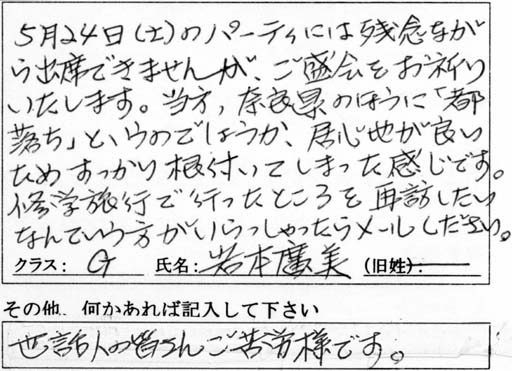 5月24日(土)のパーティには残念なが
ら出席できませんが、ご盛会をお祈り
いたします。当方、奈良県のほうに「都
落ち」というのでしょうか、居心地が良い
ためすっかり根付いてしまった感じです。
修学旅行で行ったところを再訪したい
なんていう方がいらっしゃったらメールください。
クラス: G 氏名: 岩本廣美 (旧姓):
その他、何かあれば記入して下さい
世話人の皆さんご苦労様です。